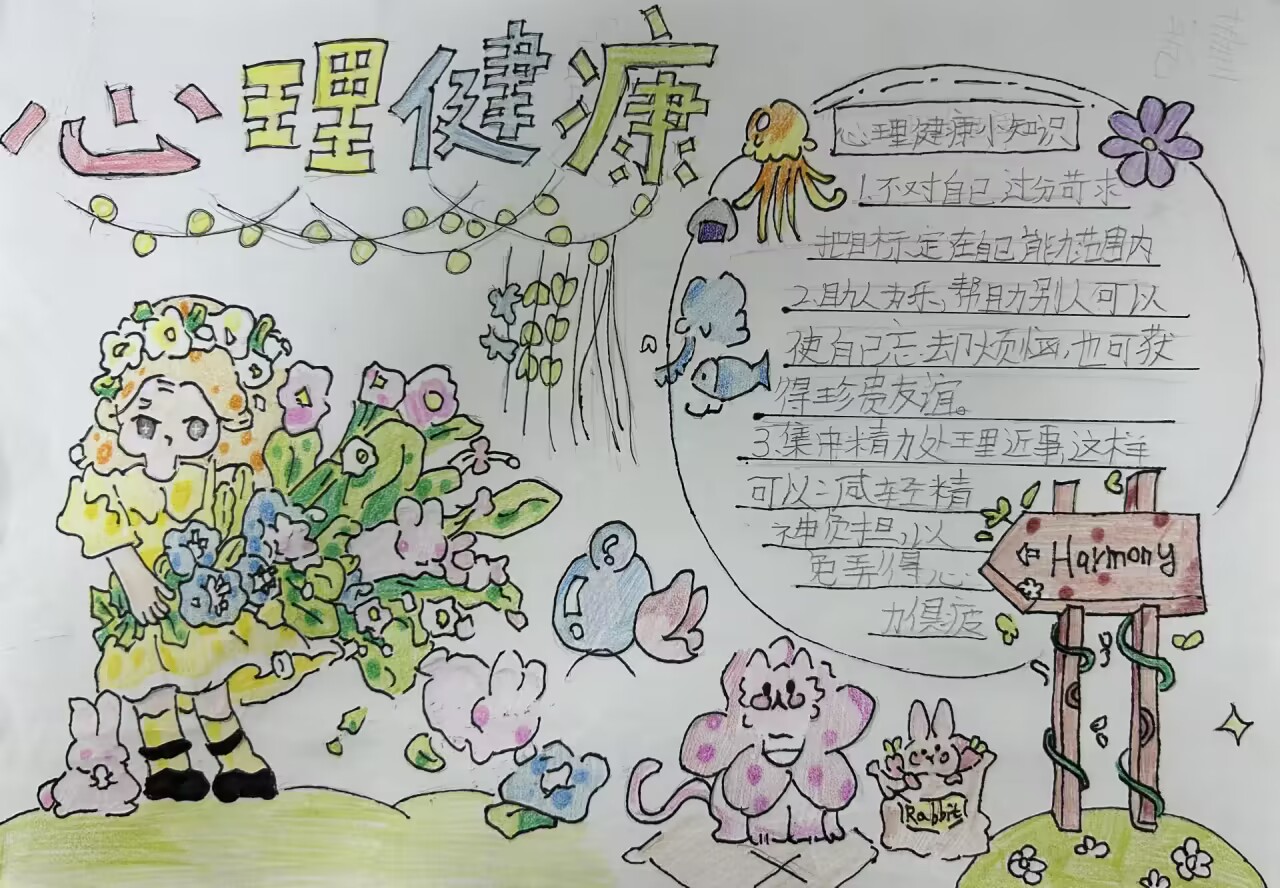 心理健康
心理健康小知识
1.不对自己过分苛求
把目标定在自己能力范围内
2.助人为乐,帮助别人可以
使自己忘却烦恼,也可获
得珍贵友谊。
3.集中精力处理近事,这样
可以减轻精
神负担,以
免弄得心
力俱疲
Harmony
Rabbit